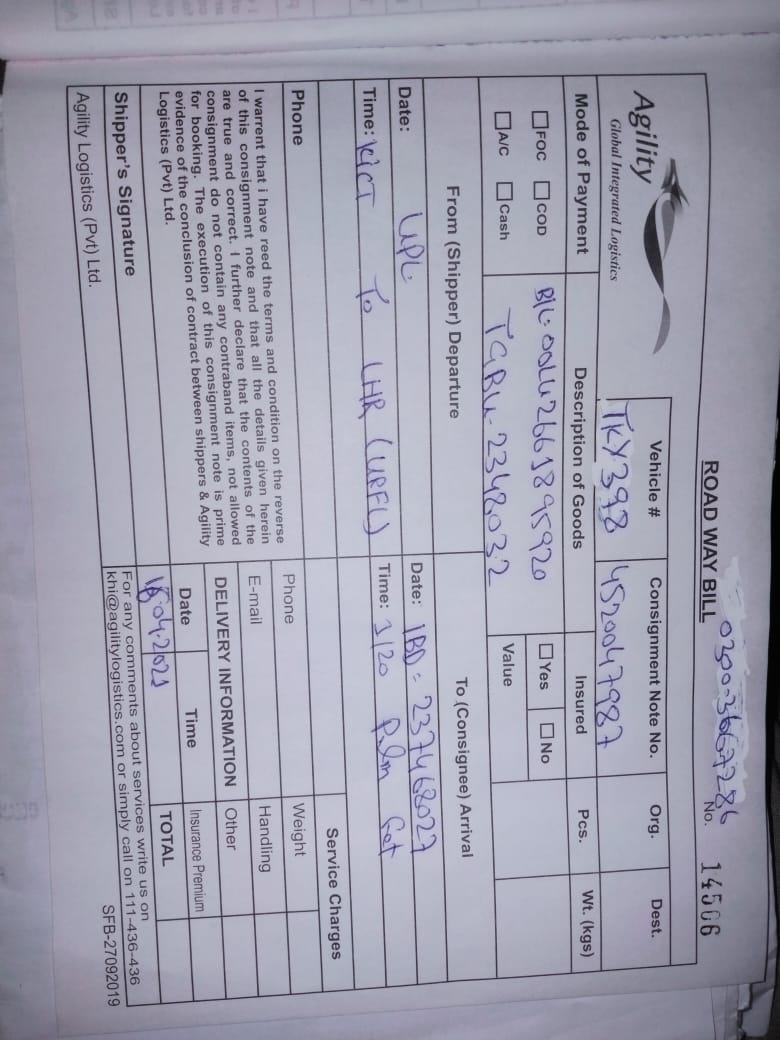 0300-3667286
ROAD WAY BILL No. 14506
Agility
Global Integrated Logistics
Vehicle # Consignment Note No. Org. Dest.
TKY398 4520047987
Mode of Payment Description of Goods Insured Pcs. Wt. (kgs)
FOC COD B/L: OOLU2661895920 Yes No
A/C Cash TGBU-2348032 Value
From (Shipper) Departure To (Consignee) Arrival
Date: UPL. Date: IBD = 237468027
Time: KICT To LHR (URFL) Time: 1/20 Palm Fat
Service Charges
Phone Phone Weight
I warrent that i have reed the terms and condition on the reverse
of this consignment note and that all the details given herein
are true and correct. I further declare that the contents of the
consignment do not contain any contraband items, not allowed
for booking. The execution of this consignment note is prime
evidence of the conclusion of contract between shippers & Agility
Logistics (Pvt) Ltd.
E-mail Handling
DELIVERY INFORMATION Other
Date Time Insurance Premium
04-2021 TOTAL
Shipper's Signature
For any comments about services write us on
khi@agilitylogistics.com or simply call on 111-436-436
Agility Logistics (Pvt) Ltd.
SFB-27092019